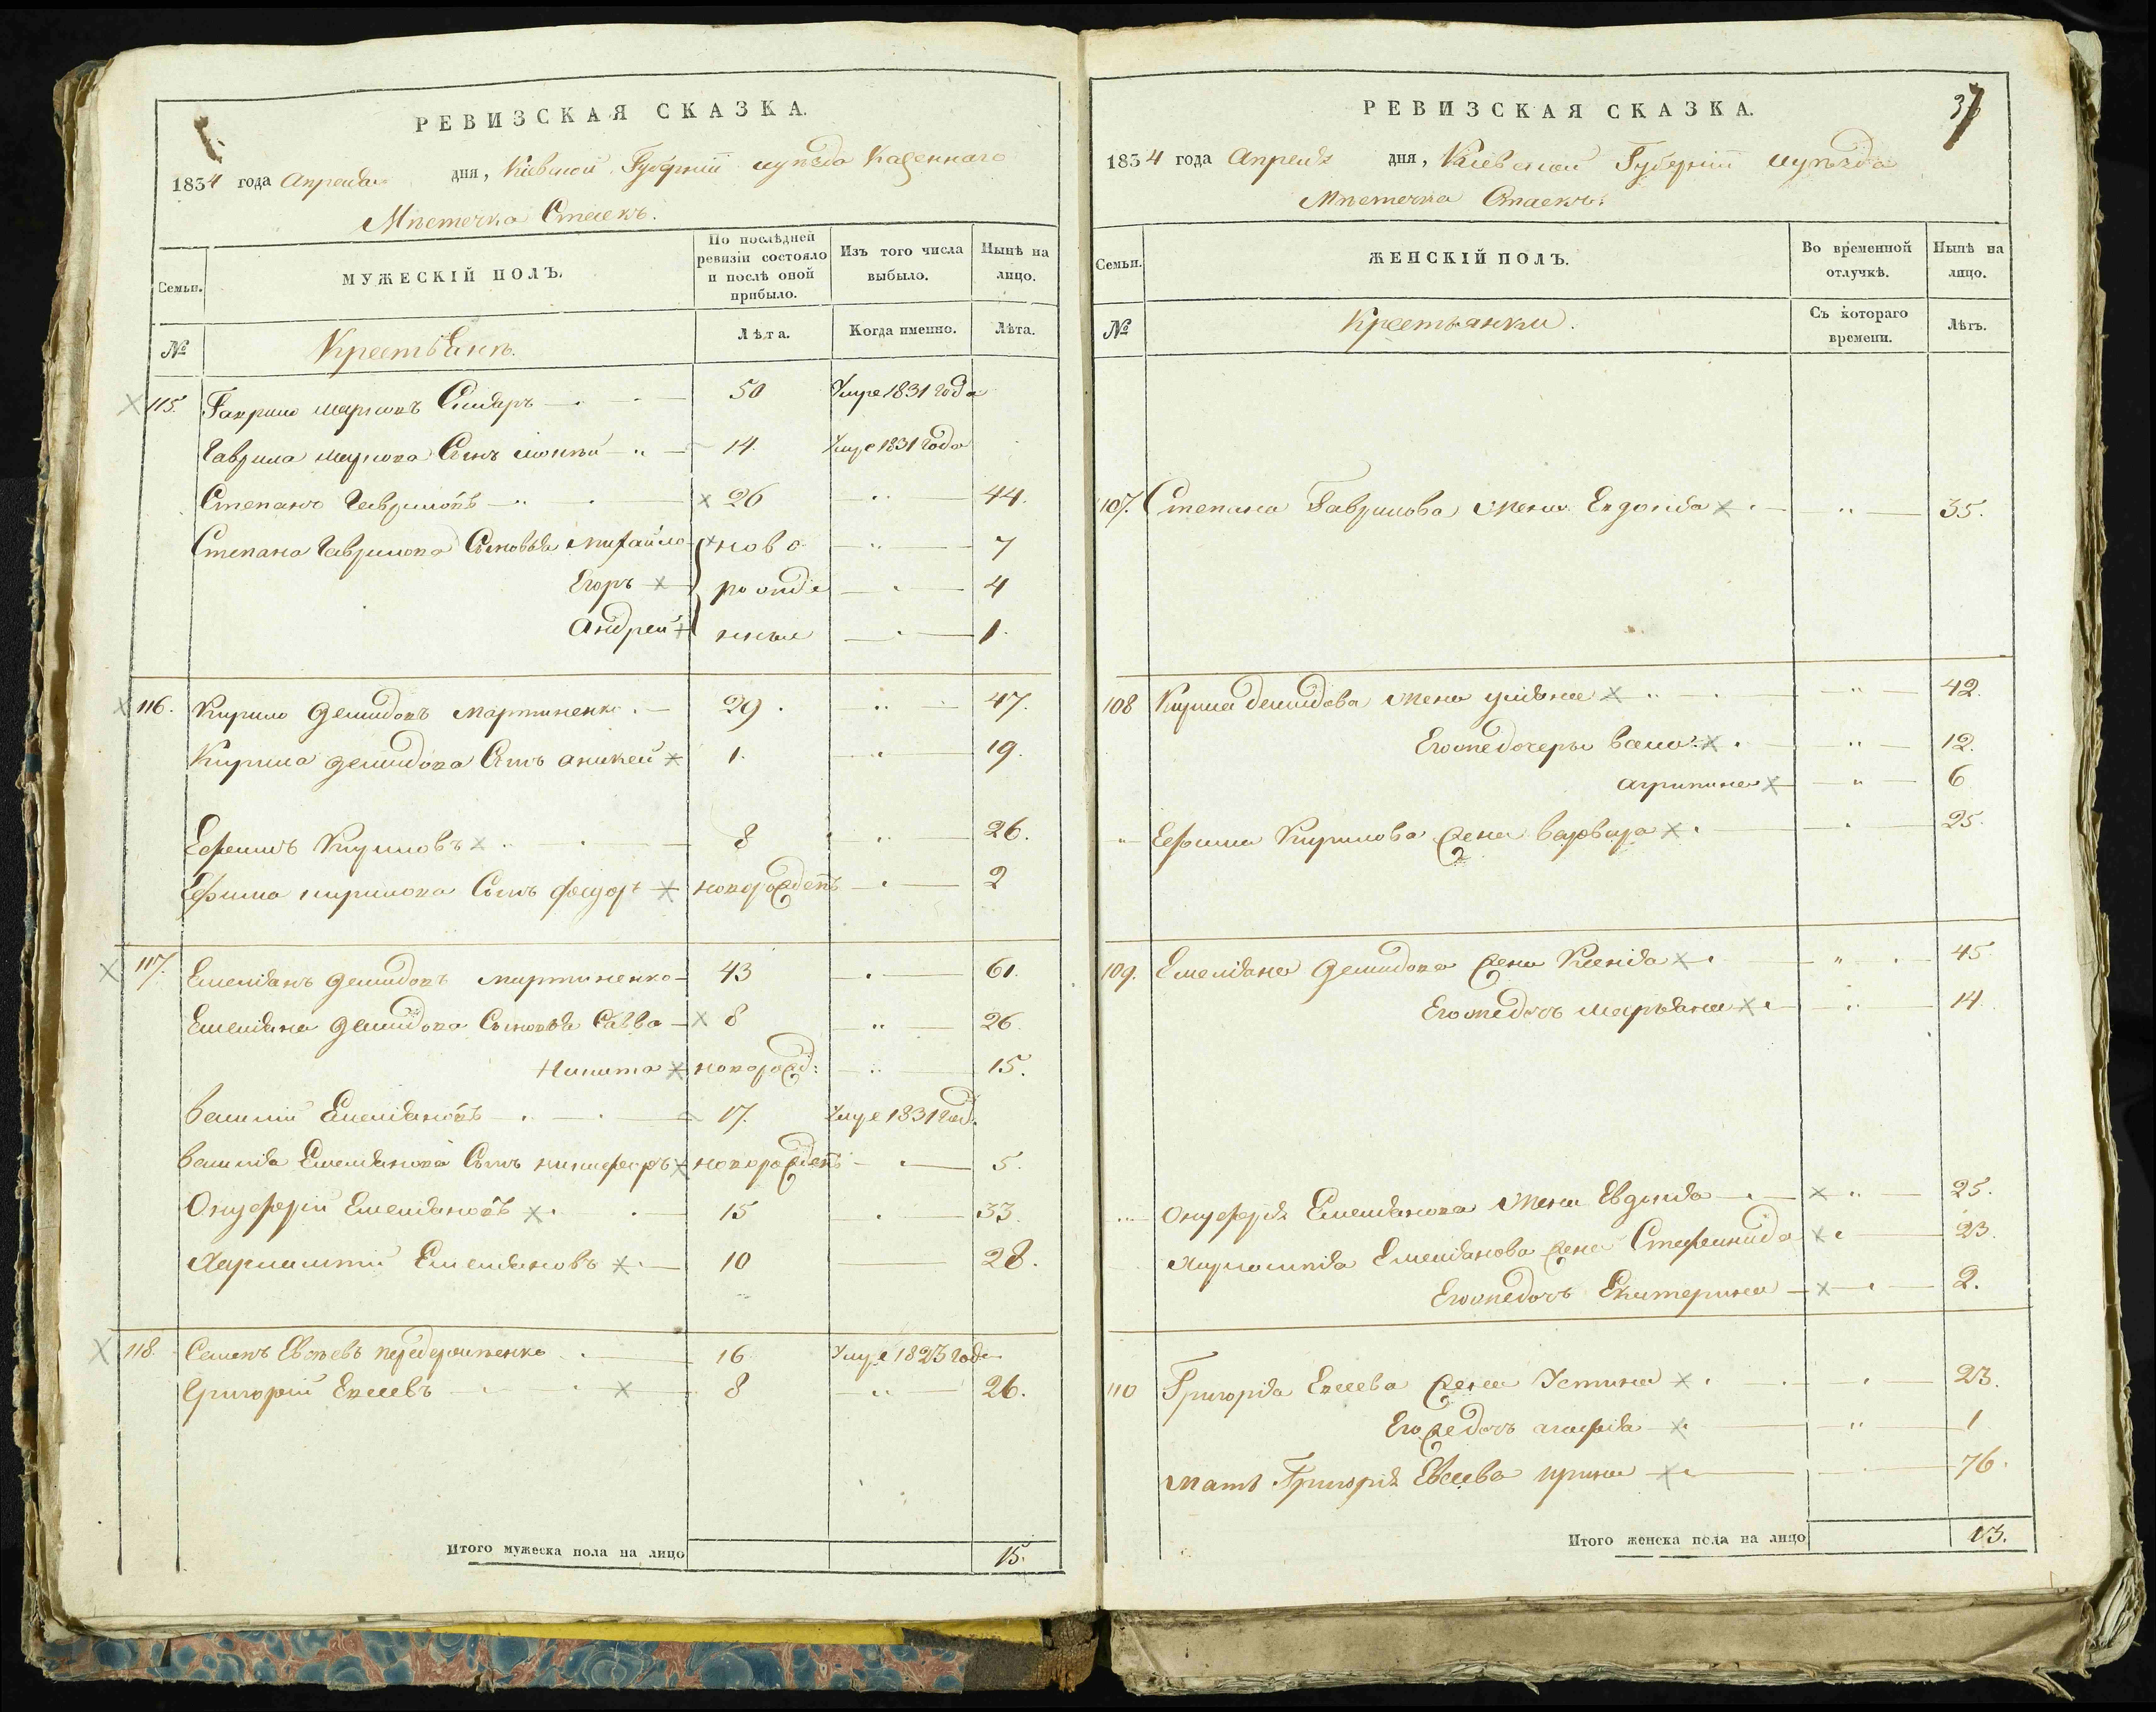 РЕВИЗСКАЯ СКАЗКА.
1834 года Апреля дня, Киевской Губерніи и уѣзда Казеннаго
Мѣстечка Стаекъ.
Семьи.
МУЖЕСКІЙ ПОЛЪ.
По послѣдней ревизіи состояло и послѣ оной прибыло.
Изъ того числа выбыло.
Нынѣ на лицо.
№
Крестьянъ.
Лѣта.
Когда именно.
Лѣта.
115. Гаврило Марковъ 50 Умре 1831 года
Гаврила Маркова Сынъ 14. Умре 1831 года
Степанъ Гавриловъ 26 44.
Степана Гаврилова Сыновья Михайло ново 7
Егоръ рожде 4
Андрей нные 1.
116. Кирило Демидовъ Мартиненко 29. 47.
Кирила Демидова Сынъ Аникей 1. 19.
Ефимъ Кириловъ 8 26.
Ефима Кирилова Сынъ Федоръ новорожденъ 2
117. Емельянъ Демидовъ Мартиненко 43 61.
Емельяна Демидова Сыновья Савва 8 26.
Никита новорожд: 15.
Василій Емельяновъ 17. Умре 1831 год.
Василія Емельянова Сынъ никифоръ новорожденъ 5.
Онуфрій Емельяновъ 15 33.
Харлампій Емельяновъ 10 28.
118. Семенъ Евсѣевъ 16 Умре 1823 года
Григорій Евсеевъ 8 26.
Итого мужеска пола на лицо 15.
37
РЕВИЗСКАЯ СКАЗКА.
1834 года Апреля дня, Киевской Губерніи и уѣзда
Мѣстечка Стаекъ.
Семьи.
ЖЕНСКІЙ ПОЛЪ.
Во временной отлучкѣ.
Нынѣ на лицо.
№
Крестьянки.
Съ котораго времени.
Лѣтъ.
107. Степана Гаврилова жена Евдокія 35.
108 Кирила Демидова жена ульяна 42.
Его же дочеры 12.
агрипина 6
Ефима Кирилова жена варвара 25
109. Емельяна Демидова жена Ксенія 45
Его же дочъ Марьяна 14.
Онуфрія Емельянова жена Евдокія 25.
Харлампія Емельянова жена Стефанида 23.
Его же дочъ Екатерина 2.
110 Григорія Евсева жена Устина 23.
Его же дочъ агафія 1
Мать Григорія Евсева ирина 76.
Итого женска пола на лицо 13.